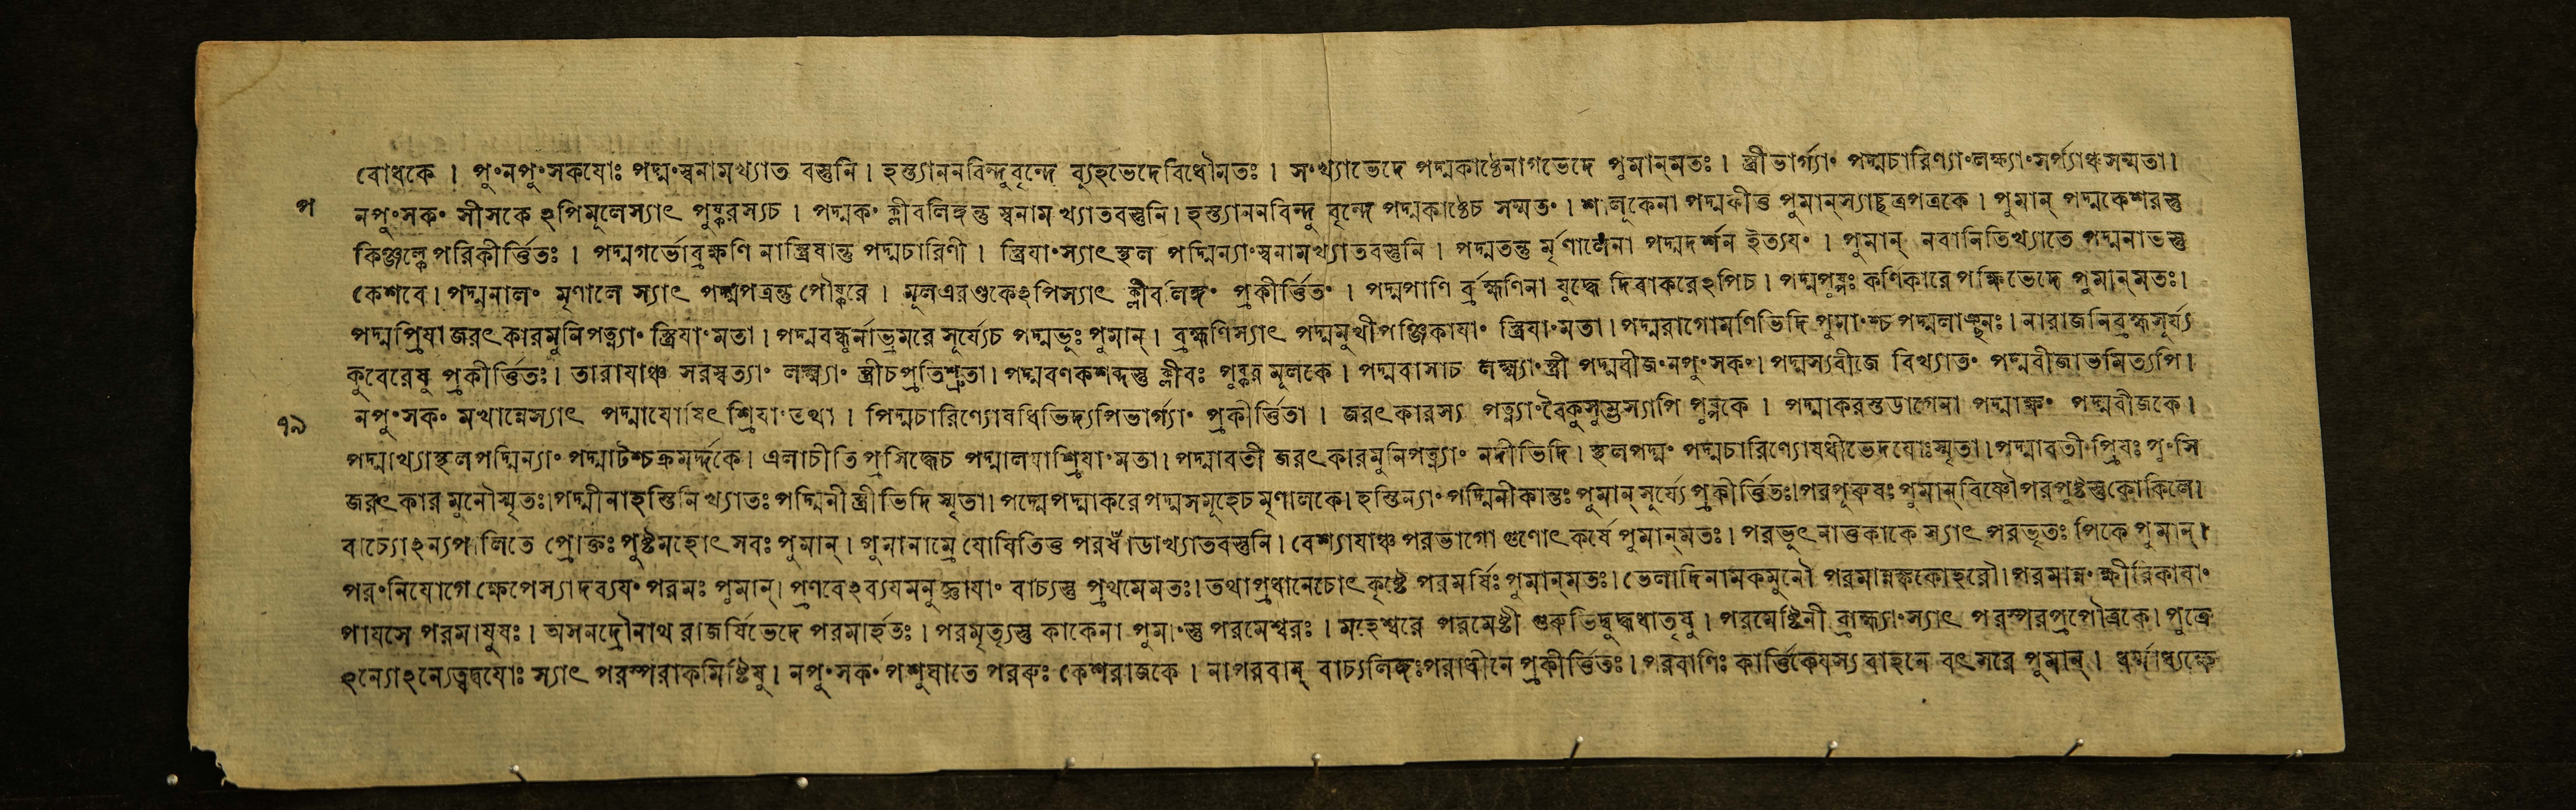 বোধকে । পুংনপুংসকযোঃ পদ্মংস্বনামখ্যাত বস্তুনি । হস্ত্যাননবিন্দুবৃন্দে ব্যুহভেদেবিধৌমতঃ । সংখ্যাভেদে পদ্মকাষ্ঠেনাগভেদে পুমান্‌মতঃ । স্ত্রীভার্গ্যাং পদ্মচারিণ্যাংলক্ষ্ম্যাংসর্প্যাঞ্চসম্মতা ।
প
নপুংসকং সীসকে ঽপিমূলেস্যাৎ পুষ্করস্যচ । পদ্মকং ক্লীবলিঙ্গন্তু স্বনামখ্যাতবস্তুনি । হস্ত্যাননবিন্দু বৃন্দে পদ্মকাষ্ঠেচ সম্মতং । শালূকেনা পদ্মকীত্ত পুমান্‌স্যাচ্ছত্রপত্রকে । পুমান্ পদ্মকেশরস্তু
কিঞ্জল্কে পরিকীর্ত্তিতঃ । পদ্মগর্ভোব্রহ্মণি নাস্ত্রিযান্তু পদ্মচারিণী । স্ত্রিযাংস্যাৎস্থল পদ্মিন্যাংস্বনামখ্যাতবস্তুনি । পদ্মতন্তু র্মৃণালেনা পদ্মদর্শন ইত্যযং । পুমান্ নবানিতিখ্যাতে পদ্মনাভস্তু
কেশবে । পদ্মনালং মৃণালে স্যাৎ পদ্মপত্রন্তু পৌষ্করে । মূলএরণ্ডকেঽপিস্যাৎ ক্লীবলিঙ্গং প্রকীর্ত্তিতং । পদ্মপাণি র্ব্রহ্মণিনা যুদ্ধে দিবাকরেঽপিচ । পদ্মপুষ্পঃ কর্ণিকারে পক্ষিভেদে পুমান্‌মতঃ ।
পদ্মপ্রিযা জরৎকারমুনিপত্ন্যাং স্ত্রিযাংমতা । পদ্মবন্ধুর্নাভ্রমরে সূর্য্যেচ পদ্মভূঃ পুমান্ । ব্রহ্মণিস্যাৎ পদ্মমুখীপঞ্জিকাযাং স্ত্রিযাংমতা । পদ্মরাগোমণিভিদি পুমাংশ্চ পদ্মলাঞ্ছনঃ । নারাজনিব্রহ্মসূর্য্য
কুবেরেষু প্রকীর্ত্তিতঃ । তারাযাঞ্চ সরস্বত্যাং লক্ষ্ম্যাং স্ত্রীচপ্রতিশ্রুতা । পদ্মবর্ণকশব্দস্তু ক্লীবঃ পুষ্কর মূলকে । পদ্মবাসাচ লক্ষ্ম্যাংস্ত্রী পদ্মবীজংনপুংসকং । পদ্মস্যবীজে বিখ্যাতং পদ্মবীজাভমিত্যপি ।
৭৯
নপুংসকং মখান্নেস্যাৎ পদ্মাযোষিৎ শ্রিযাংতথা । পিদ্মচারিণ্যোষধিভিদ্যপিভার্গ্যাং প্রকীর্ত্তিতা । জরৎকারস্য পত্ন্যাং পুষ্পকে । পদ্মাকরস্তডাগেনা পদ্মাক্ষং পদ্মবীজকে ।
পদ্মাখ্যাস্থলপদ্মিন্যাং পদ্মাটশ্চক্রমর্দ্দকে । এলাচীতি প্রসিদ্ধেচ পদ্মালযাশ্রিযাংমতা । পদ্মাবতী জরৎকারমুনিপত্ন্যাং নদীভিদি । স্থলপদ্মং পদ্মচারিণ্যোষধীভেদযোঃস্মৃতা । পদ্মাবতীংপ্রিযঃ পুংসি
জরৎকার মুনৌস্মৃতঃ । পদ্মীনাহস্তিনি খ্যাতঃ পদ্মিনীস্ত্রীভিদি স্মৃতা । পদ্মেপদ্মাকরেপদ্মসমূহেচ মৃণালকে । হস্তিন্যাং পদ্মিনীকান্তঃ পুমান্ সূর্য্যে প্রকীর্ত্তিতঃ । পরপুরুষঃ পুমান্‌বিষ্ণৌপরপুষ্টস্তুকোকিলে ।
বাচ্যোঽন্যপালিতে প্রোক্তঃ পুষ্টমহোৎসবঃ পুমান্ । পুমানাম্রে যোষিতিত্ত পরর্ধাডাখ্যাতবস্তুনি । বেশ্যাযাঞ্চ পরভাগো গুণোৎকর্ষে পুমান্‌মতঃ । পরভুৎনাত্তকাকে স্যাৎ পরভৃতঃ পিকে পুমান্ ।
পরংনিযোগে ক্ষেপেস্যাদব্যযং পরমঃ পুমান্ । প্রণবেঽব্যযমনুজ্ঞাযাং বাচ্যস্তু প্রথমেমতঃ । তথাপ্রধানেচোৎকৃষ্টে পরমর্ষিঃ পুমান্‌মতঃ । ভেলাদিনামকমুনৌ পরমান্নং ক্ষীরিকাযাং
পাযসে পরমাযুষঃ । অসনদ্রৌনাথ রাজর্ষিভেদে পরমার্হতঃ । পরমৃত্যুস্তু কাকেনা পুমাংস্তু পরমেশ্বরঃ । মহেশ্বরে পরমেষ্ঠী গুরুভিদ্বুদ্ধধাতৃষু । পরমেষ্টিনী ব্রাহ্ম্যাংস্যাৎ পরস্পরপ্রপৌত্রকে । পুত্রে
ঽন্যোঽন্যেত্বদ্বযোঃ স্যাৎ পরস্পরাকমির্ষ্টিষু । নপুংসকং পশুঘাতে পররুঃ কেশরাজকে । নাপরবান্ বাচ্যলিঙ্গঃপরাধীনে প্রকীর্ত্তিতঃ । পরবাণিঃ কার্ত্তিকেযস্য বাহনে বৎসরে পুমান্ । ধর্ম্মাধ্যক্ষে